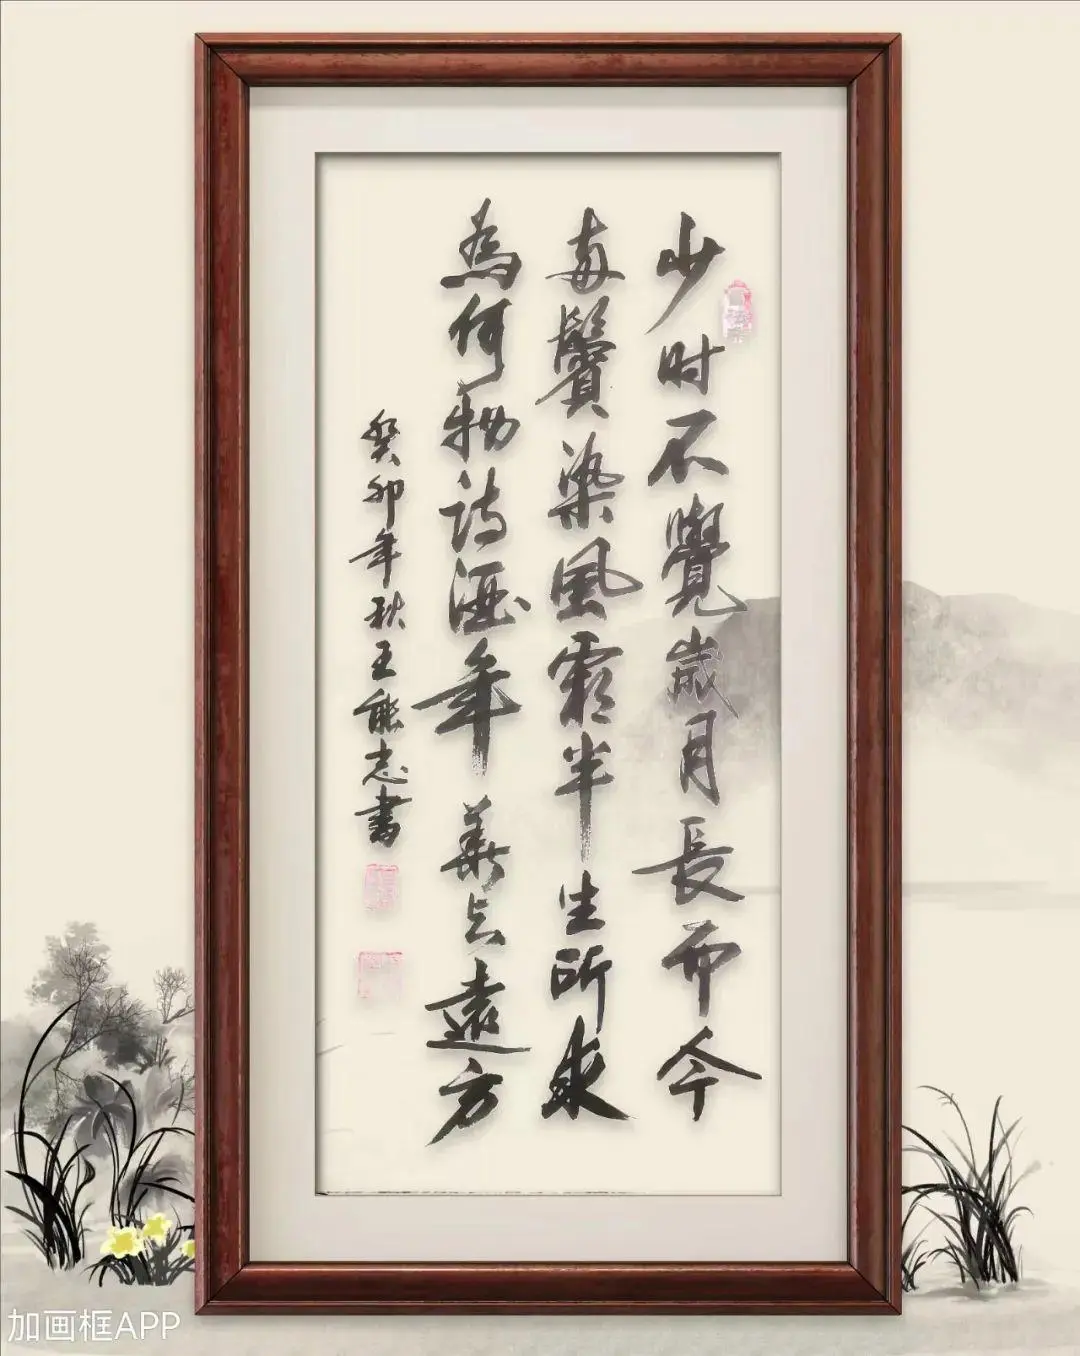 少时不覺歲月長而今
每鬢染風霜半生所求
為何物詩酒年華与遠方
癸卯年秋王能志書
加画框APP